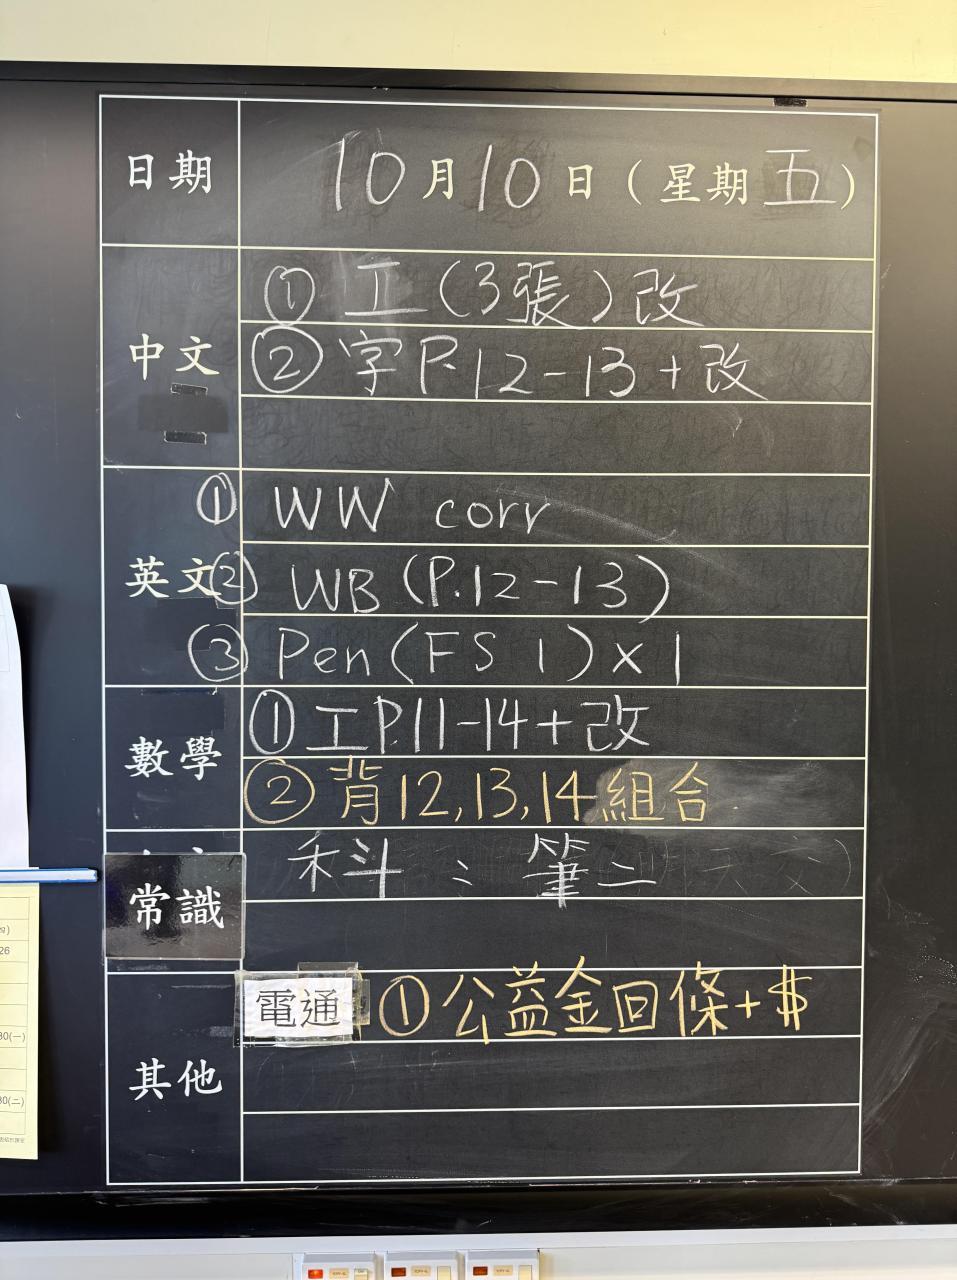 日期 10月10日(星期五)
中文
① 工(3張)改
② 字P.12-13+改
英文
① WW corr
② WB(P.12-13)
③ Pen(FS 1)x1
數學
① 工P.11-14+改
② 背12,13,14組合
常識
科:筆二
其他
電通 ① 公益金回條+$
26
30(一)
30(二)